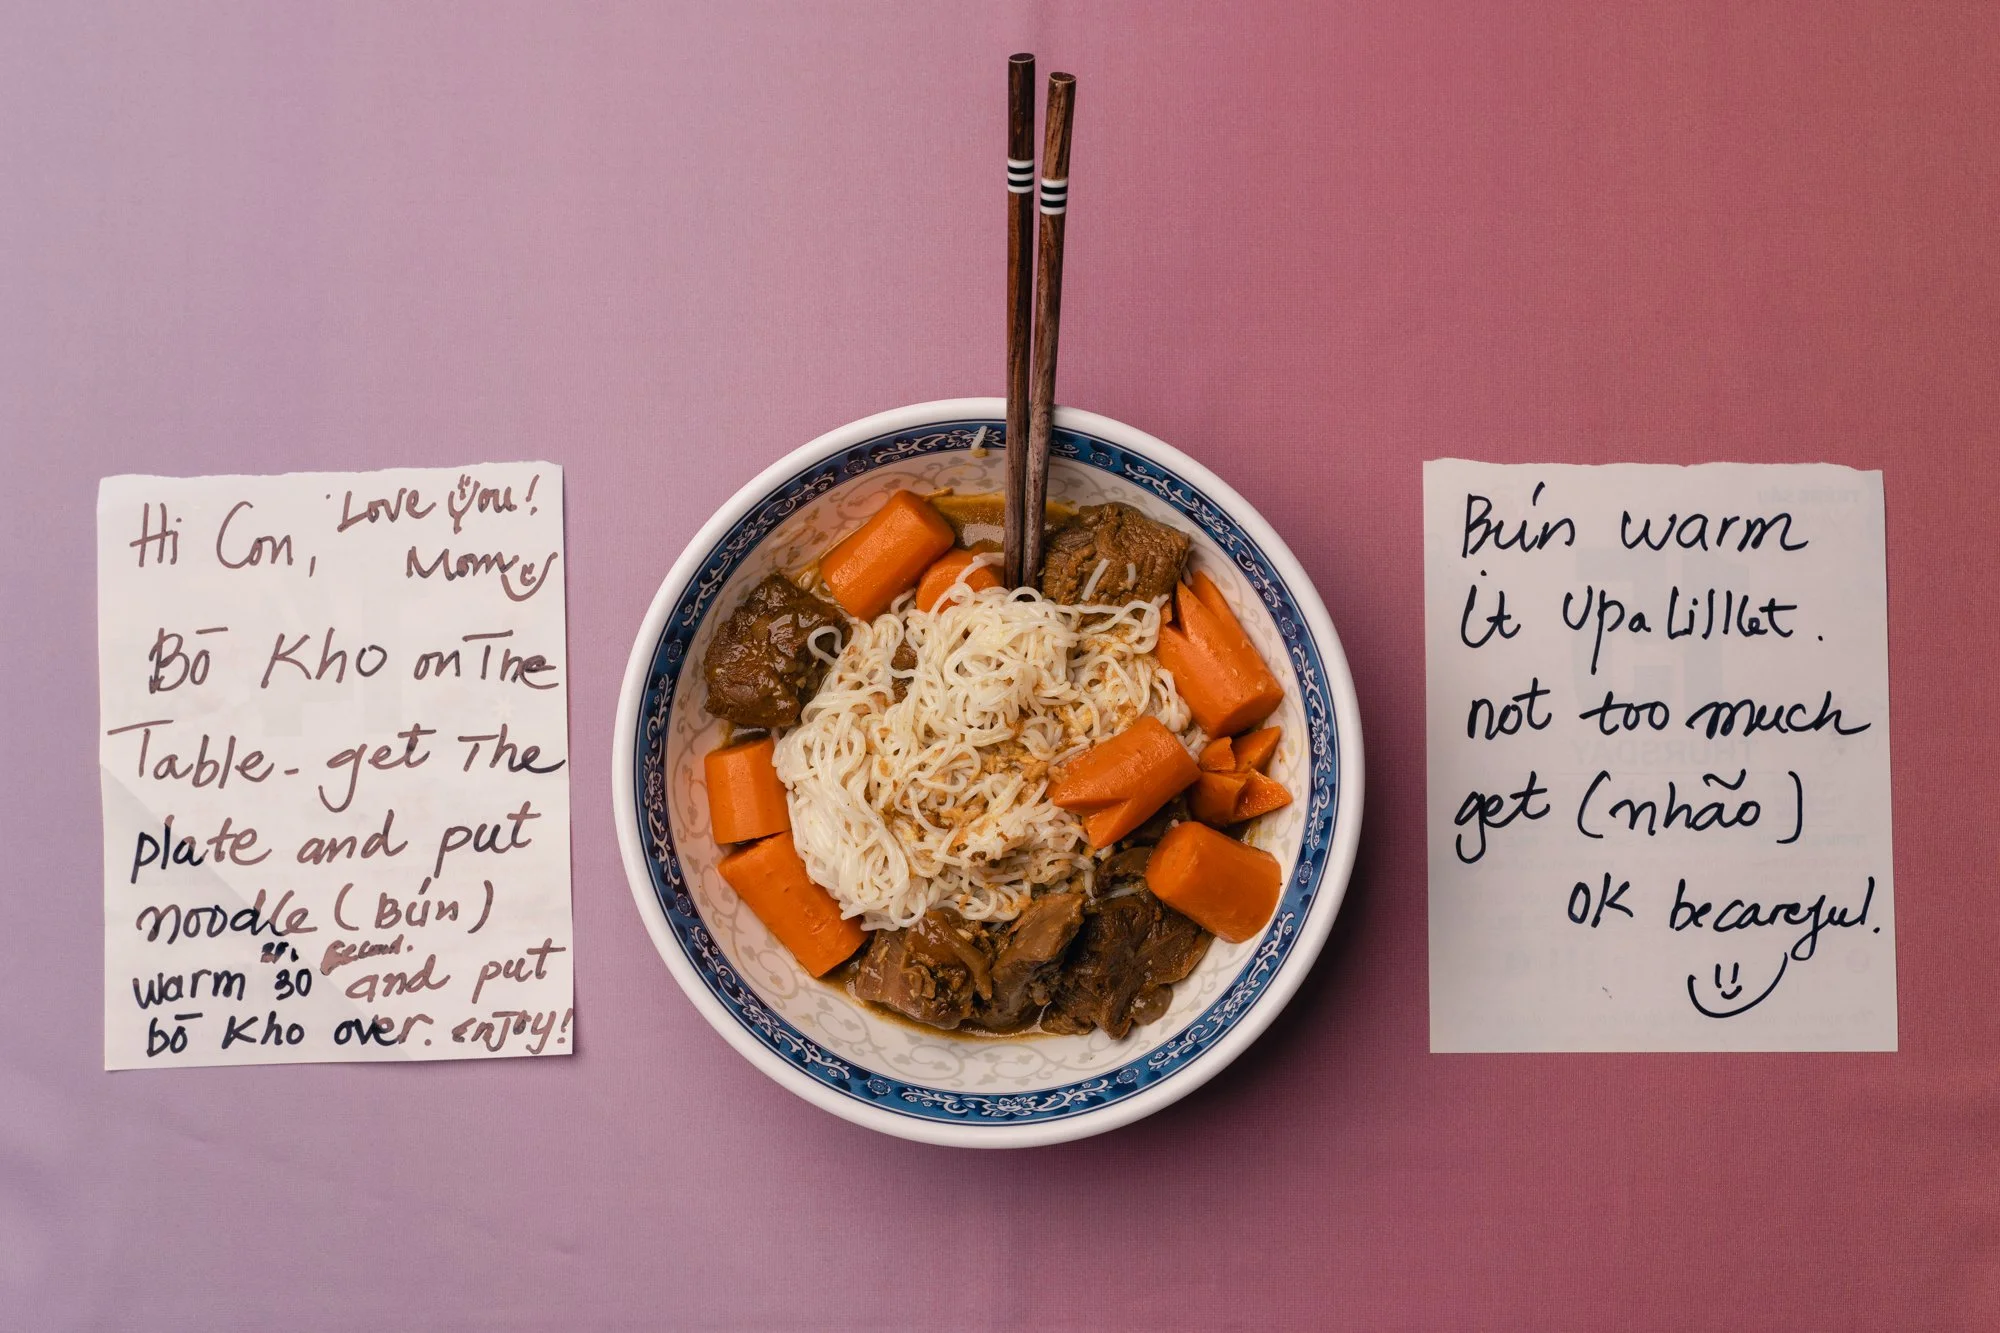 Hi Con, Love you!
Mom
Bō Kho on The
Table - get The
plate and put
noodle (Bún)
warm 30 second. and put
bō Kho over. enjoy!
Bún warm
it up a lillet.
not too much
get (nhão)
OK becareful.
THURSDAY